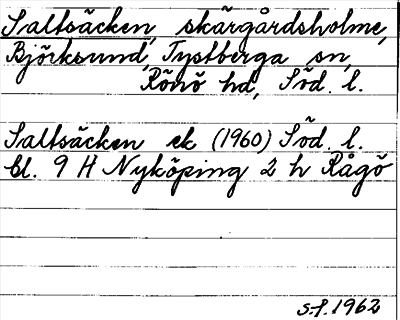 Saltsäcken, skärgårdsholme,
Björksund, Tystberga sn,
Rönö hd, Söd. l.
Saltsäcken ek (1960) Söd. l.
bl. 9 H Nyköping 2 h Rågö
s.f. 1962